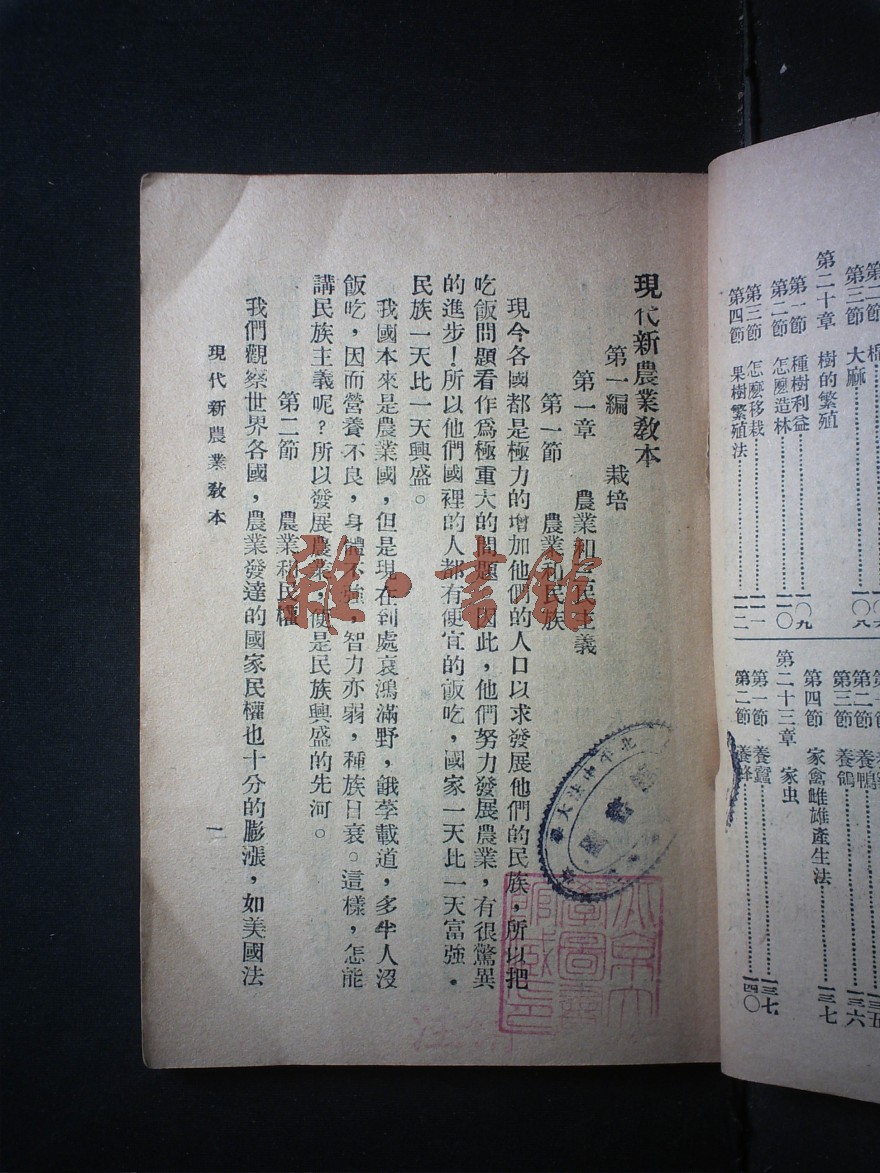 第三節 大麻……一〇八
第二十章 樹的繁殖
第一節 種樹利益……一〇九
第二節 怎麼造林……一一〇
第三節 怎麼移栽……一一一
第四節 果樹繁殖法……一一二
第二節 養鴨
第三節 養鴿……一三六
第四節 家禽雌雄產生法……一三七
第二十三章 家虫
第一節 養蠶……一三七
第二節 養蜂……一四〇
現代新農業教本
第一編 栽培
第一章 農業和三民主義
第一節 農業和民族
現今各國都是極力的增加他們的人口以求發展他們的民族，所以把
吃飯問題看作爲極重大的問題，因此，他們努力發展農業，有很驚異
的進步！所以他們國裡的人都有便宜的飯吃，國家一天比一天富強。
民族一天比一天興盛。
我國本來是農業國，但是現在到處哀鴻滿野，餓莩載道，多半人沒
飯吃，因而營養不良，身體不強，智力亦弱，種族日衰。這樣，怎能
講民族主義呢？所以發展農業，便是民族興盛的先河。
第二節 農業和民權
我們觀察世界各國，農業發達的國家民權也十分的膨漲，如美國法
現代新農業教本
雜·書館
北平中法大學
北京大學圖書館藏